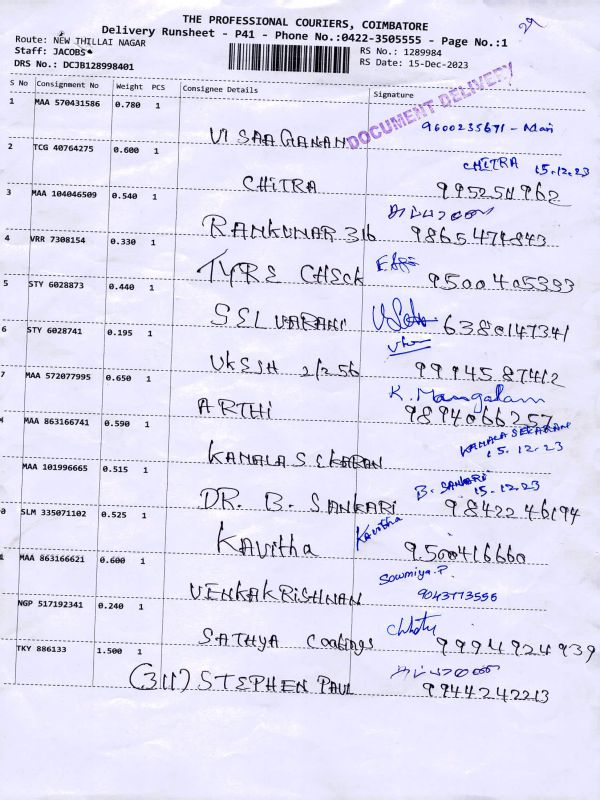 29
THE PROFESSIONAL COURIERS, COIMBATORE
Delivery Runsheet - P41 - Phone No.:0422-3505555 - Page No.:1
Route: NEW THILLAI NAGAR
Staff: JACOBS
RS No.: 1289984
DRS No.: DCJB128998401
RS Date: 15-Dec-2023
S No Consignment No Weight PCS Consignee Details Signature
DOCUMENT DELIVERY
1 MAA 570431586 0.780 1
VISAAGANAN 9600235671 - Mani
2 TCG 40764275 0.600 1
CHITRA 15.12.23
CHITRA
3 MAA 104046509 0.540 1
RAMKUMAR 316 9865471843
4 VRR 7308154 0.330 1
TYRE CHSCK 9500405393
5 STY 6028873 0.440 1
SELVARANI 6380147341
6 STY 6028741 0.195 1
VKSSH 2/2.56 9994587412
7 MAA 572077995 0.650 1
K. Mangalam
ARTHI 9894066257
MAA 863166741 0.590 1
KAMALASEKARAN
15.12.23
KAMALASEKARAN
MAA 101996665 0.515 1
B. SANKARI
15.12.23
DR. B. SANKARI 9842246194
0 SLM 335071102 0.525 1
Kavitha
Kavitha 9500416660
MAA 863166621 0.600 1
Sowmiya.P.
VENKAKRISHNAN 9043773556
NGP 517192341 0.240 1
SATHYA Coatings 9994924939
TKY 886133 1.500 1
(311) STEPHEN PAUL 9944242213